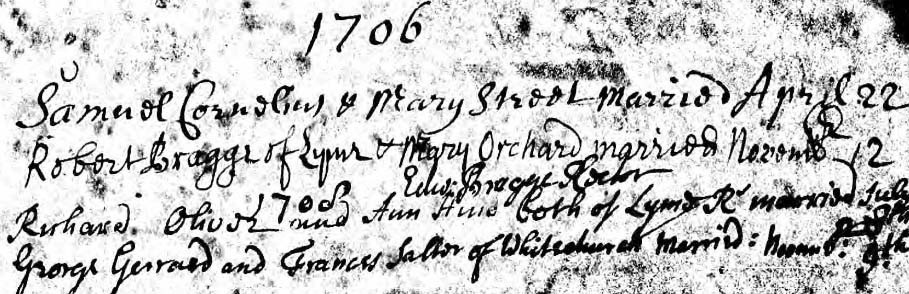 1706
Samuel Cornelius & Mary Street Married April: 22
Robert Bragge of Lyme & Mary Orchard married Novemb 12
Edw: Bragge Rector
1708
Richard Oliver and Ann both of Lyme Rs married July
George Gerrard and Frances Salter of Whitechurch Marrid: Novemb: 9th